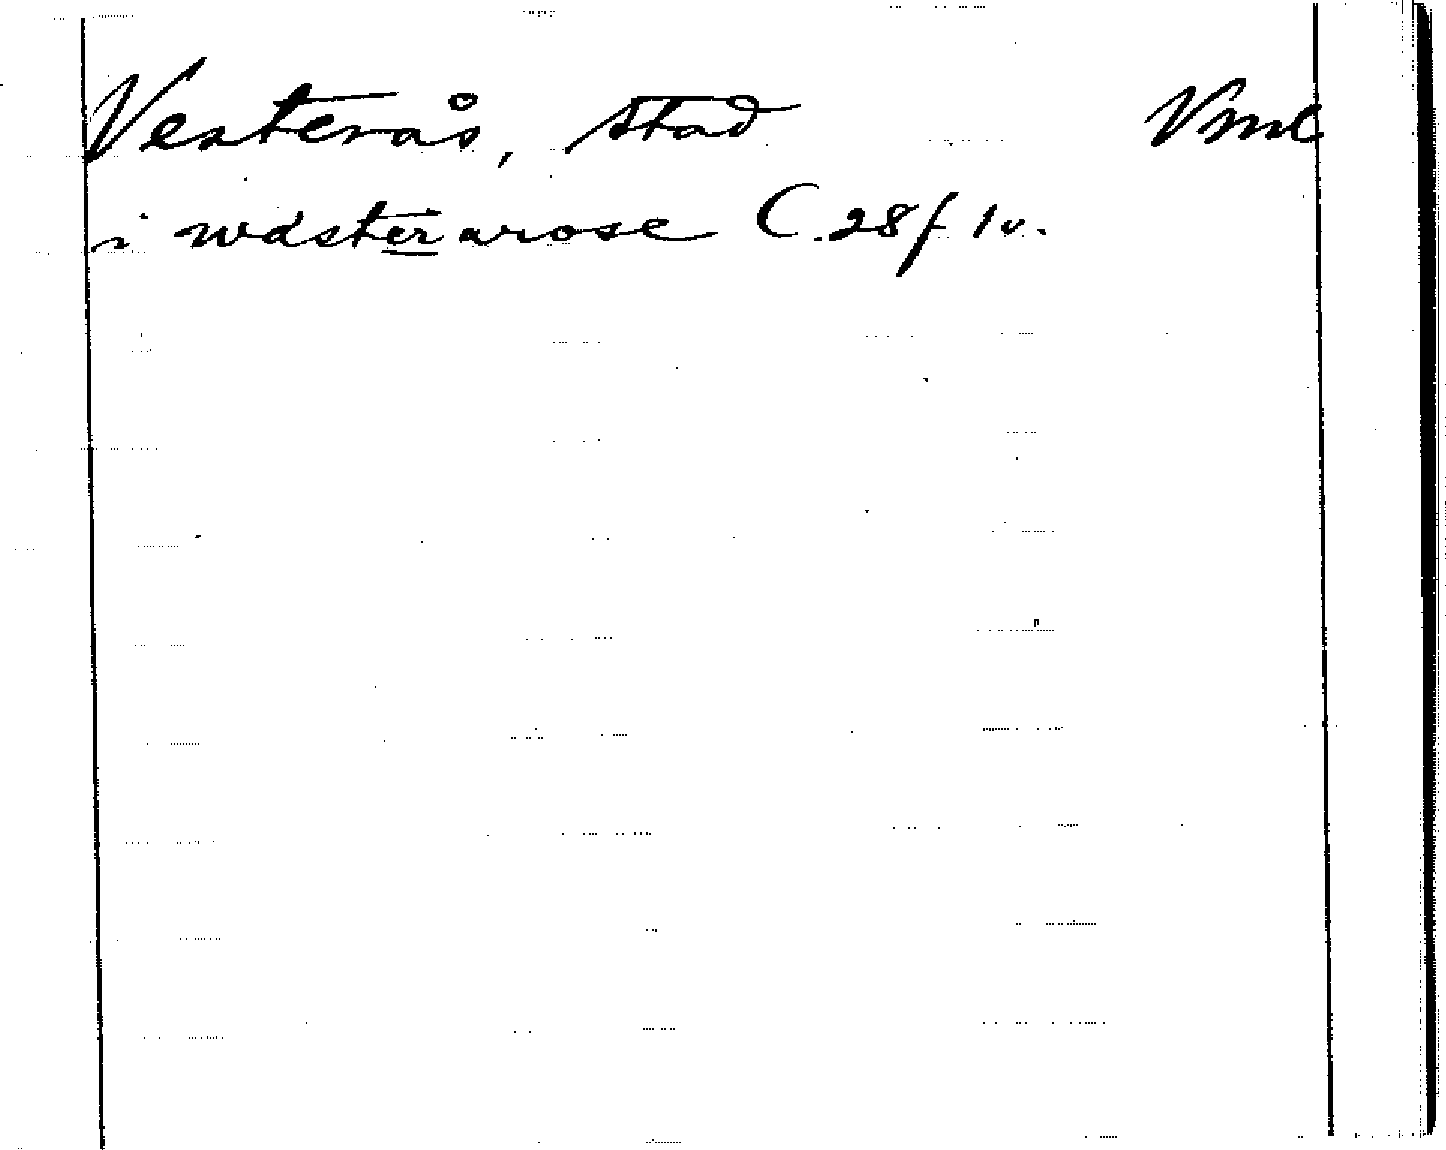 Vesterås, stad Vml
i wästerarose C.28 f 1v.